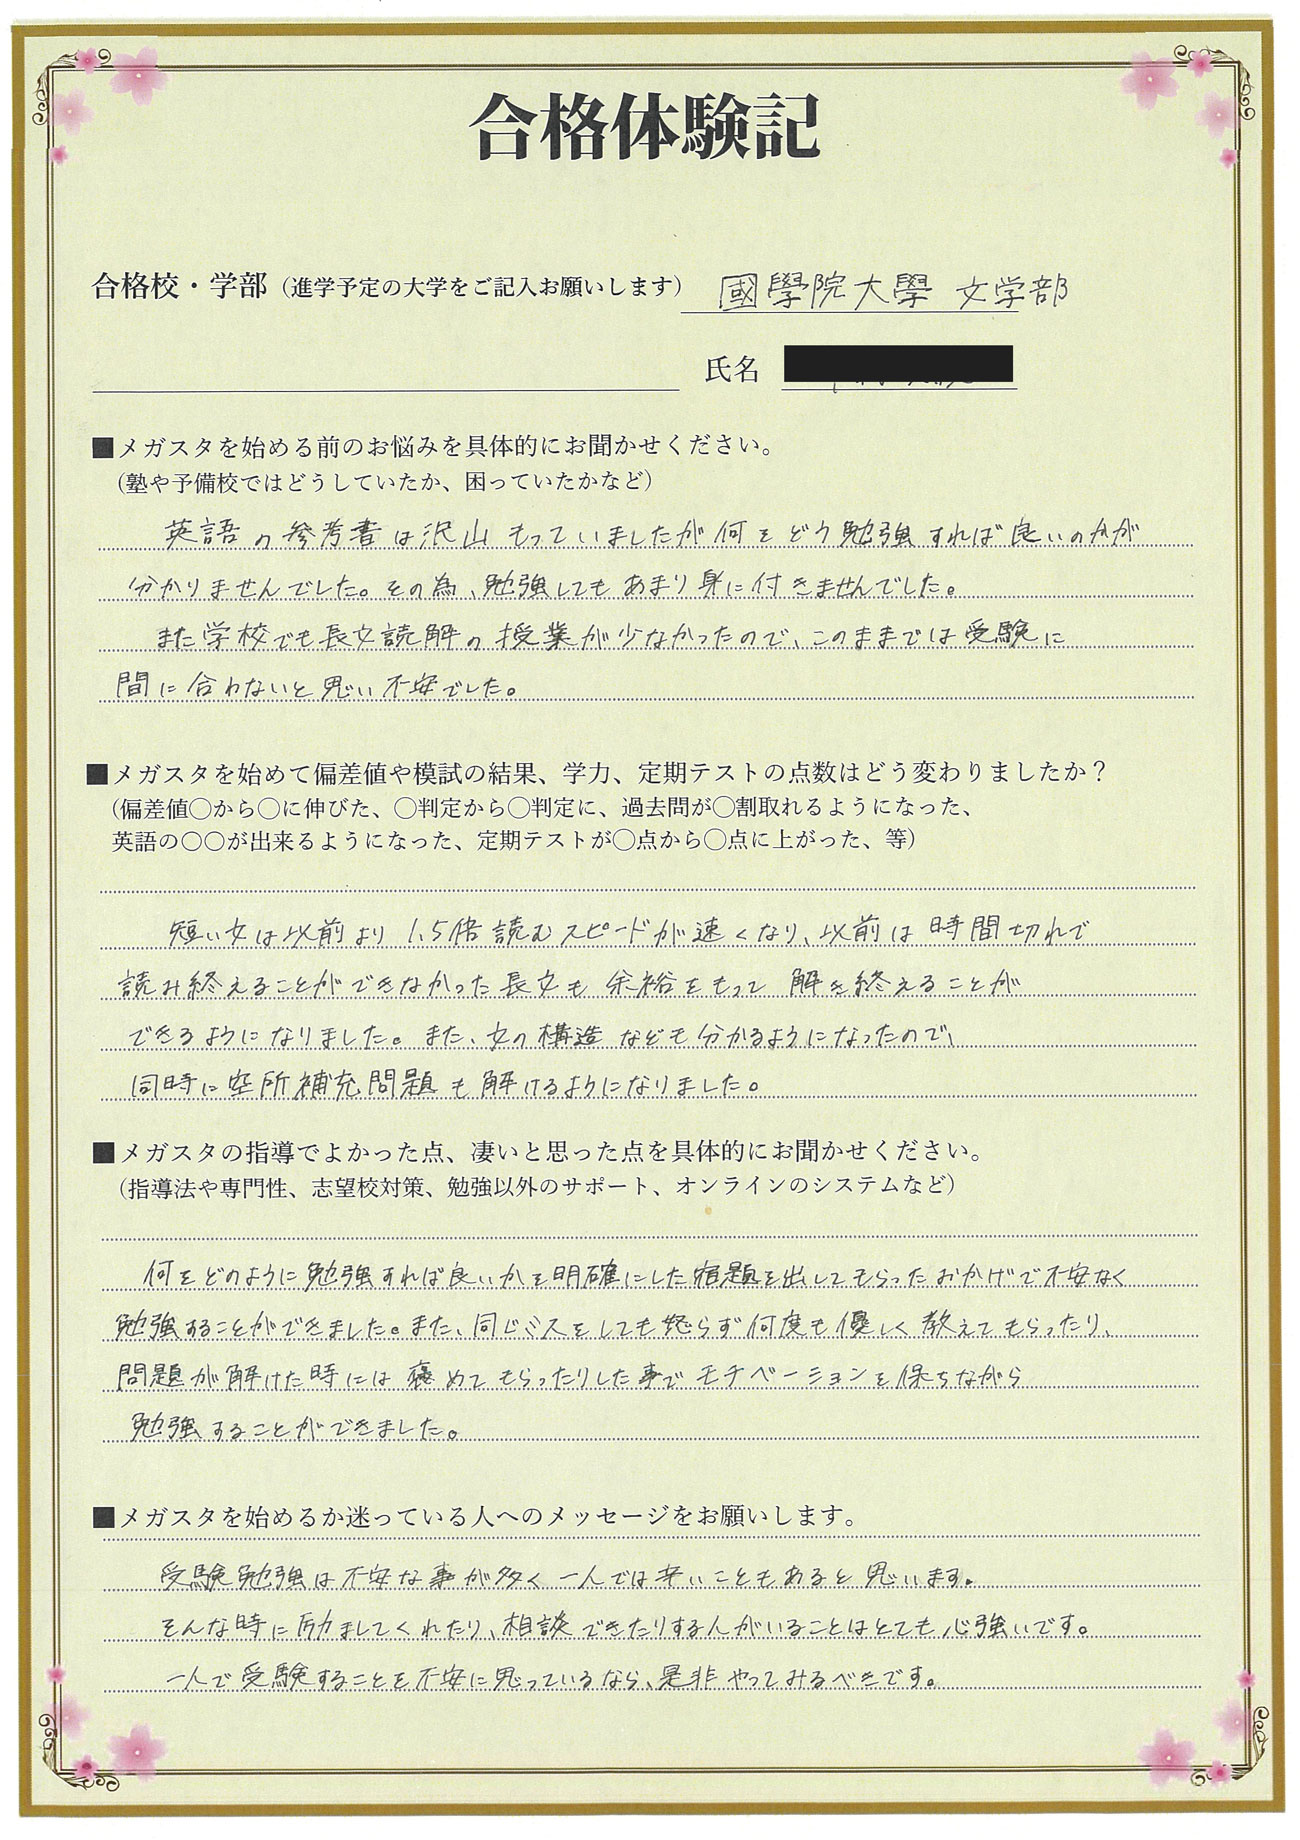 合格体験記
合格校・学部（進学予定の大学をご記入お願いします） 國學院大學 文学部
氏名
■メガスタを始める前のお悩みを具体的にお聞かせください。
（塾や予備校ではどうしていたか、困っていたかなど）
英語の参考書は沢山もっていましたが何をどう勉強すれば良いのかが
分かりませんでした。その為、勉強してもあまり身に付きませんでした。
また学校でも長文読解の授業が少なかったので、このままでは受験に
間に合わないと思い不安でした。
■メガスタを始めて偏差値や模試の結果、学力、定期テストの点数はどう変わりましたか？
（偏差値〇から〇に伸びた、〇判定から〇判定に、過去問が〇割取れるようになった、
英語の〇〇が出来るようになった、定期テストが〇点から〇点に上がった、等）
短い文は以前より1.5倍読むスピードが速くなり、以前は時間切れで
読み終えることができなかった長文も余裕をもって解き終えることが
できるようになりました。また、文の構造なども分かるようになったので、
同時に空所補充問題も解けるようになりました。
■メガスタの指導でよかった点、凄いと思った点を具体的にお聞かせください。
（指導法や専門性、志望校対策、勉強以外のサポート、オンラインのシステムなど）
何をどのように勉強すれば良いかを明確にした宿題を出してもらったおかげで不安なく
勉強することができました。また、同じミスをしても怒らず何度も優しく教えてもらったり、
問題が解けた時には褒めてもらったりした事でモチベーションを保ちながら
勉強することができました。
■メガスタを始めるか迷っている人へのメッセージをお願いします。
受験勉強は不安な事が多く一人では辛いこともあると思います。
そんな時に励ましてくれたり、相談できたりする人がいることはとても心強いです。
一人で受験することを不安に思っているなら、是非やってみるべきです。